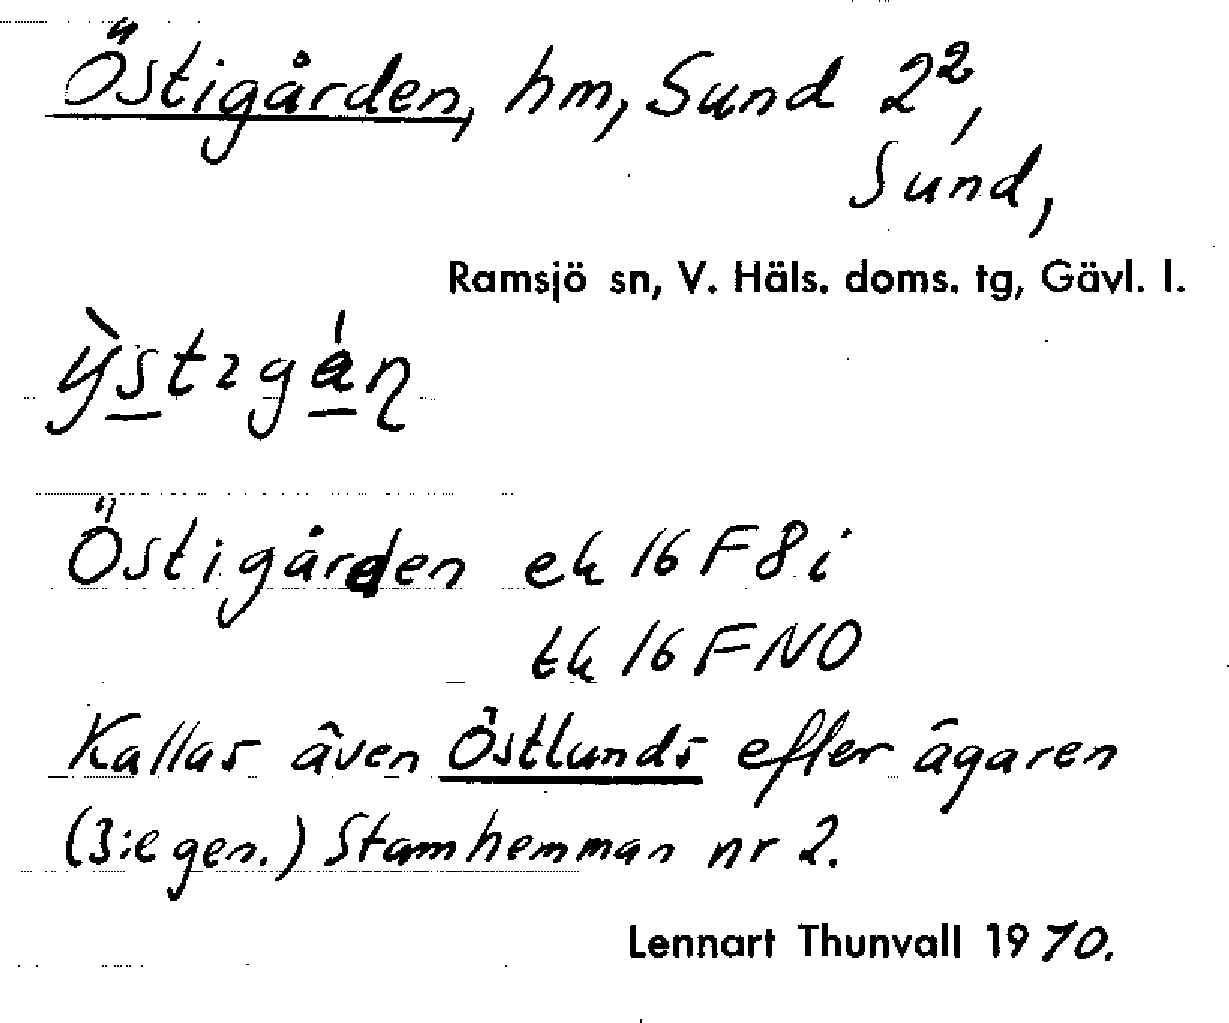 Östigården, hm, Sund 2²,
Sund,
Ramsjö sn, V. Häls. doms. tg, Gävl. l.
Östigården ek 16 F 8 i
tk 16 F NO
Kallas även Östlunds efter ägaren
(3:e gen.) Stamhemman nr 2.
Lennart Thunvall 1970.